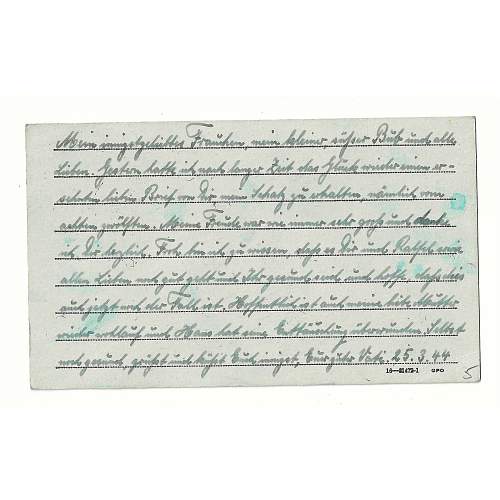 Mein innigstgeliebtes Frauchen, mein kleiner, süßer Bub und alle
Lieben. Gestern hatte ich nach langer Zeit das Glück wieder einen er-
sehnten lieben Brief von Dir, mein Schatz zu erhalten, nämlich vom
achten zwölften. Meine Freude war wie immer sehr groß und danke
ich Dir herzlich. Froh bin ich zu wissen, dass es Dir und
allen Lieben noch gut geht und Ihr gesund seid, und hoffe, dass dies
auch jetzt noch der Fall ist. Hoffentlich ist auch meine liebe Mutter
wieder wohlauf und Hans hat seine überwunden. Selbst
noch gesund, grüßt und küßt Euch innigst, Euer guter Vati. 25.3.44
16—21472-1 GPO
5